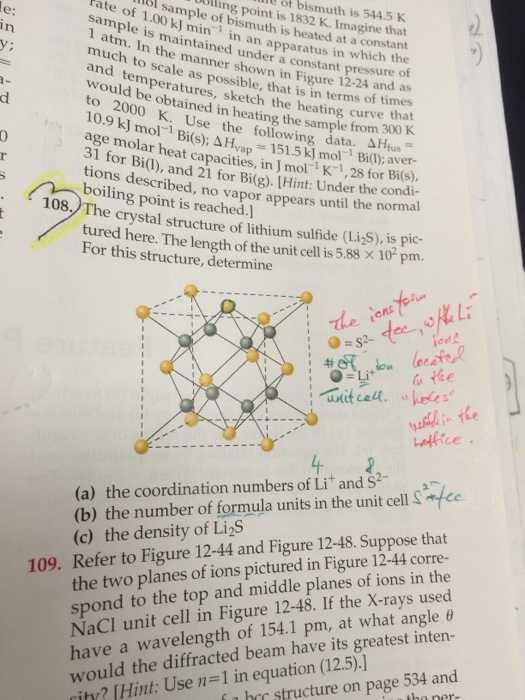 of bismuth is 544.5 K
boiling point is 1832 K. Imagine that
sample of bismuth is heated at a constant
rate of 1.00 kJ min⁻¹ in an apparatus in which the
sample is maintained under a constant pressure of
1 atm. In the manner shown in Figure 12-24 and as
much to scale as possible, that is in terms of times
and temperatures, sketch the heating curve that
would be obtained in heating the sample from 300 K
to 2000 K. Use the following data. ΔHfus =
10.9 kJ mol⁻¹ Bi(s); ΔHvap = 151.5 kJ mol⁻¹ Bi(l); aver-
age molar heat capacities, in J mol⁻¹ K⁻¹, 28 for Bi(s),
31 for Bi(l), and 21 for Bi(g). [Hint: Under the condi-
tions described, no vapor appears until the normal
boiling point is reached.]
108. The crystal structure of lithium sulfide (Li₂S), is pic-
tured here. The length of the unit cell is 5.88 × 10² pm.
For this structure, determine
The ions form
fcc, w/ the Li⁺
= S²⁻
ions
# of ion
located
= Li⁺
in the
unit cell.
"holes"
within the
lattice.
4 8
(a) the coordination numbers of Li⁺ and S²⁻
(b) the number of formula units in the unit cell
S²⁻ fcc
(c) the density of Li₂S
109. Refer to Figure 12-44 and Figure 12-48. Suppose that
the two planes of ions pictured in Figure 12-44 corre-
spond to the top and middle planes of ions in the
NaCl unit cell in Figure 12-48. If the X-rays used
have a wavelength of 154.1 pm, at what angle θ
would the diffracted beam have its greatest inten-
sity? [Hint: Use n=1 in equation (12.5).]
bcc structure on page 534 and